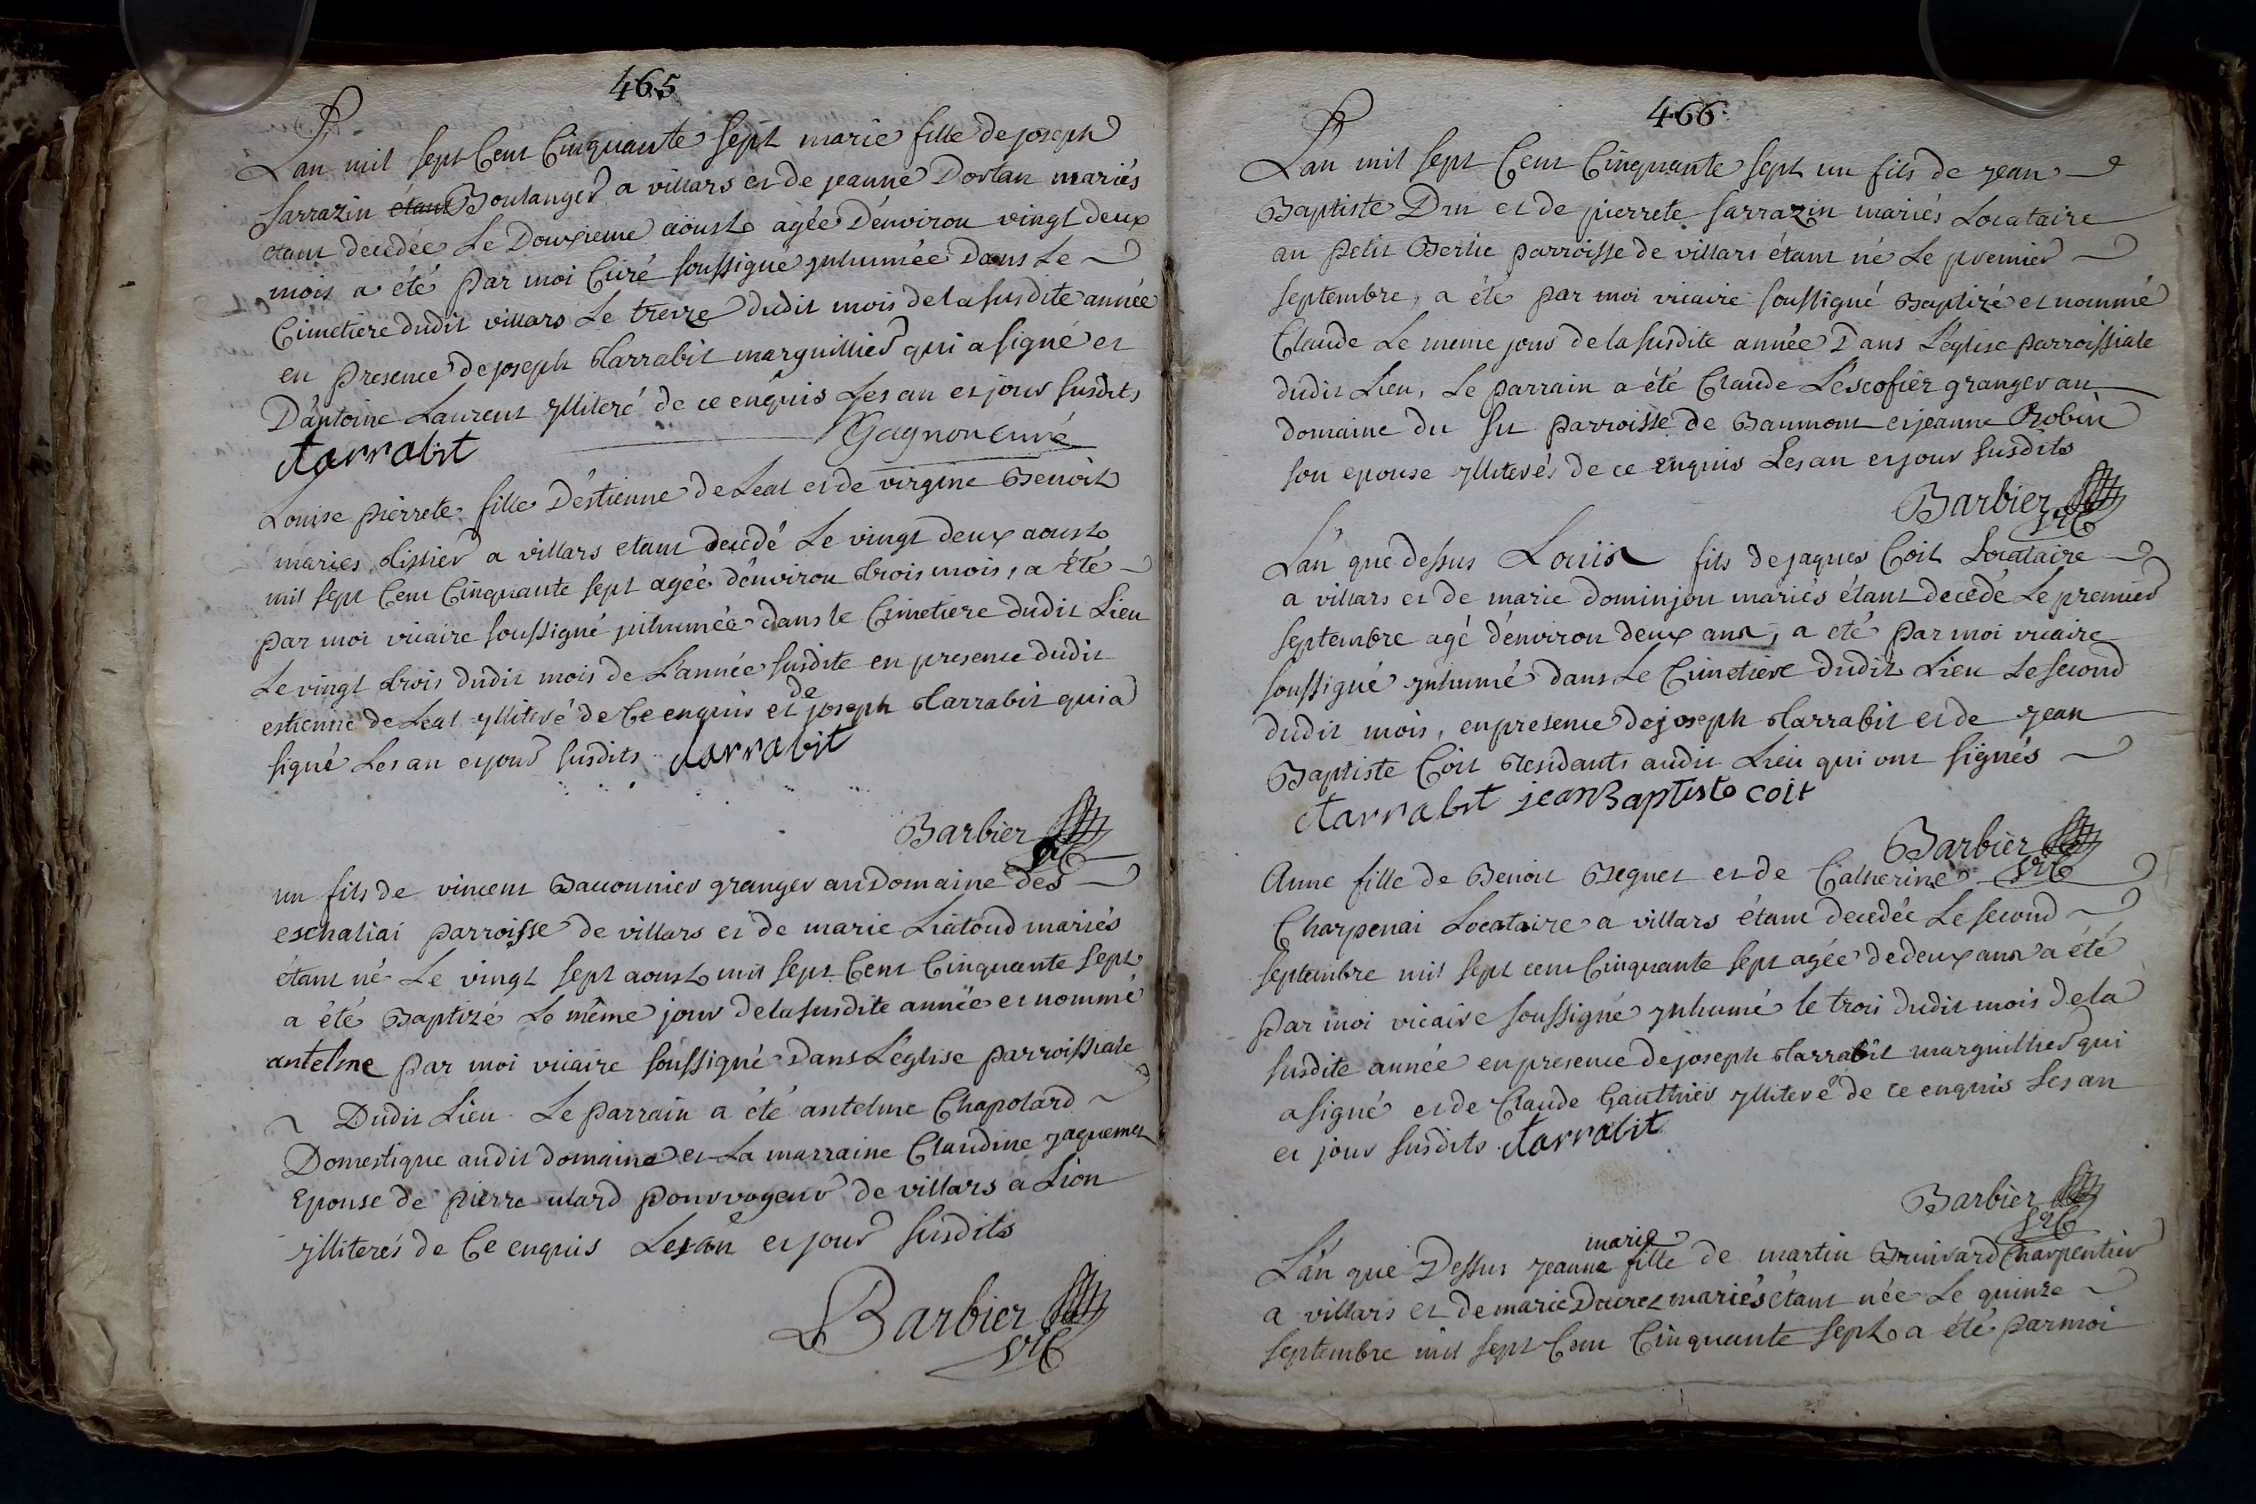 465
L'an mil sept Cent Cinquante sept marie fille de joseph
sarrazin étant Boulanger a villars et de jeanne Dortan mariés
etant decedée Le Douxieme aoust agée D'environ vingt deux
mois a été par moi Curé soussigné ynhumée Dans Le
Cimetiere dudit villars Le treize dudit mois de la susdite année
en presence de joseph tarrabit marguillier qui a signé et
D'antoine Laurent ylliteré de ce enquis Les an et jour susdits
tarrabit Gagnon curé
Louise pierrete fille D'estienne de Leal et de virgine Benoit
mariés tissier a villars etant decedé Le vingt deux aoust
mil sept Cent Cinquante sept agée d'environ trois mois, a été
par moi vicaire soussigné inhumée dans le Cimetiere dudit Lieu
Le vingt trois dudit mois de L'année susdite en presence dudit
estienne de Leal ylliteré de Ce enquis et de joseph tarrabit qui a
signé Les an et jour susdits tarrabit
Barbier vic
un fils de vincent Bauonnier granger au Domaine des
eschaliai parroisse de villars et de marie Liatoud mariés
étant né Le vingt sept aoust mil sept Cent Cinquante sept
a été Baptizé Le même jour de la susdite année et nommé
antelme par moi vicaire soussigné Dans L'eglise parroissiale
Dudit Lieu Le parrain a été antelme Chapolard
Domestique audit domaine et La marraine Claudine jaquemet
Epouse de pierre ulard pourvoyeur de villars a Lion
ylliterés de Ce enquis Les an et jour susdits
Barbier vic
466
L'an mil sept Cent Cinquante sept un fils de jean
Baptiste Dru et de pierrete sarrazin mariés Locataire
au petit Berlie parroisse de villars étant né Le premier
septembre, a été par moi vicaire soussigné Baptizé et nommé
Claude Le meme jour de la susdite année Dans L'eglise parroissiale
dudit Lieu, Le parrain a été Claude Lescofier granger au
domaine du su parroisse de Baumont et jeanne Robin
son epouse ylliterés de ce enquis Les an et jour susdits
Barbier vic
L'an que dessus Louis fils de jaques Coit Locataire
a villars et de marie dominjon mariés étant decedé Le premier
septembre agé d'environ deux ans, a eté par moi vicaire
soussigné ynhumé dans Le Cimetiere dudit Lieu Le second
dudit mois, en presence de joseph tarrabit et de jean
Baptiste Coit Residants audit Lieu qui ont signés
tarrabit jean Baptiste coit
Barbier vic
Anne fille de Benoit Beguet et de Catherine
Charpenai Locataire a villars étant decedée Le second
septembre mil sept cent Cinquante sept agée de deux ans a été
par moi vicaire soussigné ynhumé le trois dudit mois de la
susdite année en presence de joseph tarrabit marguillier qui
a signé et de Claude Gauthier ylliteré de ce enquis Les an
et jour susdits tarrabit
Barbier vic
L'an que Dessus jeanne marie fille de martin Bruivard Charpentier
a villars et de marie Ducret mariés étant née Le quinze
septembre mil sept Cent Cinquante sept a été par moi